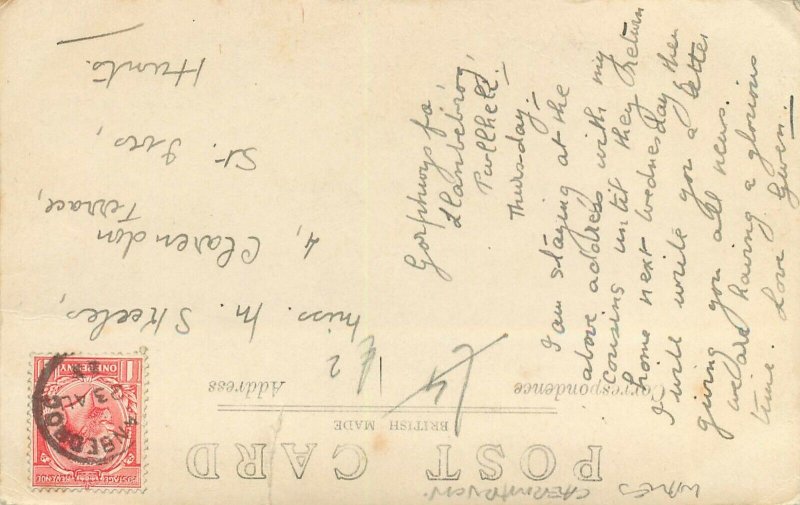 WALES
CAERNARVON
POST CARD
BRITISH MADE
Correspondence
Address
£2
4
Gorphwysfa,
Llanbedrog,
Pwllheli.
Thursday.
I am staying at the
above address with my
cousins until they return
home next Wednesday then
I will write you a letter
giving you all news.
We are having a glorious
time. Love Gwen.
Miss. M. Skeels,
4, Clarendon
Terrace,
St. Ives,
Hunts.
LLANBEDROG
POSTAGE REVENUE
ONE PENNY